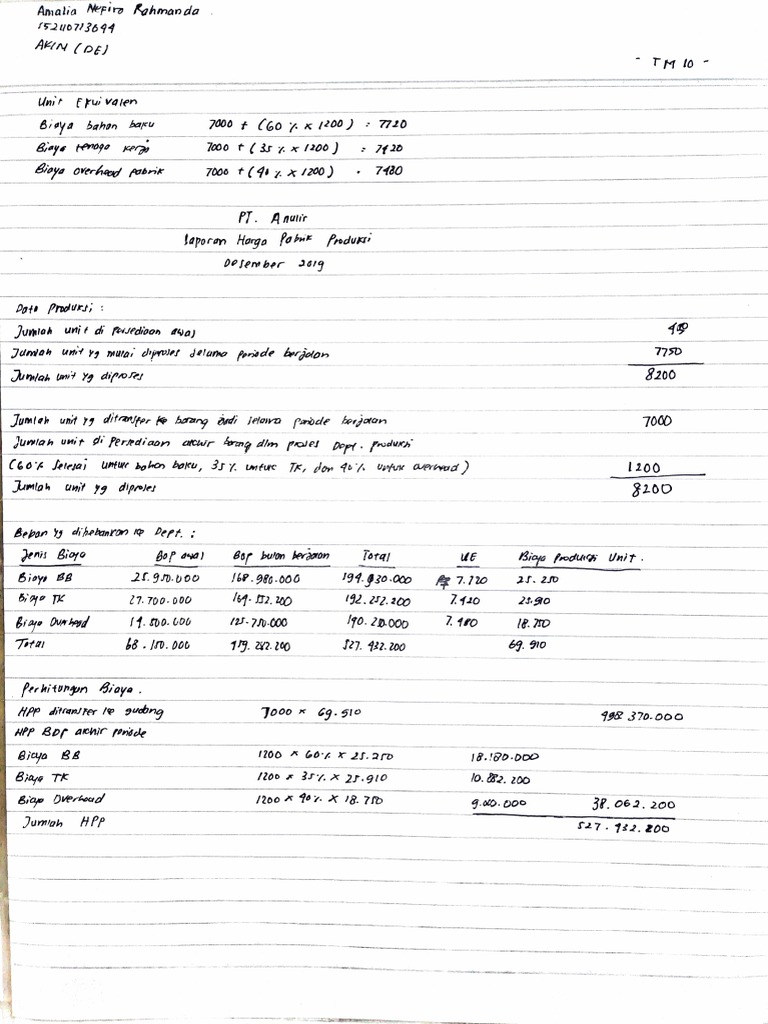 Amalia Nefira Rahmanda
152110713644
AKIN (DE)
- TM 10 -
Unit Ekuivalen
Biaya bahan baku 7000 + (60% x 1200) = 7720
Biaya tenaga kerja 7000 + (35% x 1200) = 7420
Biaya overhead pabrik 7000 + (40% x 1200) = 7480
PT. Anulir
Laporan Harga Pabrik Produksi
Desember 2019
Data Produksi :
Jumlah unit di persediaan awal
Jumlah unit yg mulai diproses selama periode berjalan 7750
Jumlah unit yg diproses 8200
Jumlah unit yg ditransfer ke barang jadi selama periode berjalan 7000
Jumlah unit di persediaan akhir barang dlm proses Dept. produksi
(60% selesai untuk bahan baku, 35% untuk TK, dan 40% untuk overhead) 1200
Jumlah unit yg diproses 8200
Beban yg dibebankan ke Dept. :
Jenis Biaya BDP awal BDP bulan berjalan Total UE Biaya Produksi Unit.
Biaya BB 25.950.000 168.980.000 194.930.000 7.720 25.250
Biaya TK 27.700.000 164.552.200 192.252.200 7.420 25.910
Biaya Overhead 14.500.000 125.750.000 140.250.000 7.480 18.750
Total 68.150.000 459.282.200 527.432.200 69.910
Perhitungan Biaya.
HPP ditransfer ke gudang 7000 x 69.910 498.370.000
HPP BDP akhir periode
Biaya BB 1200 x 60% x 25.250 18.180.000
Biaya TK 1200 x 35% x 25.910 10.882.200
Biaya Overhead 1200 x 40% x 18.750 9.000.000 38.062.200
Jumlah HPP 527.432.200